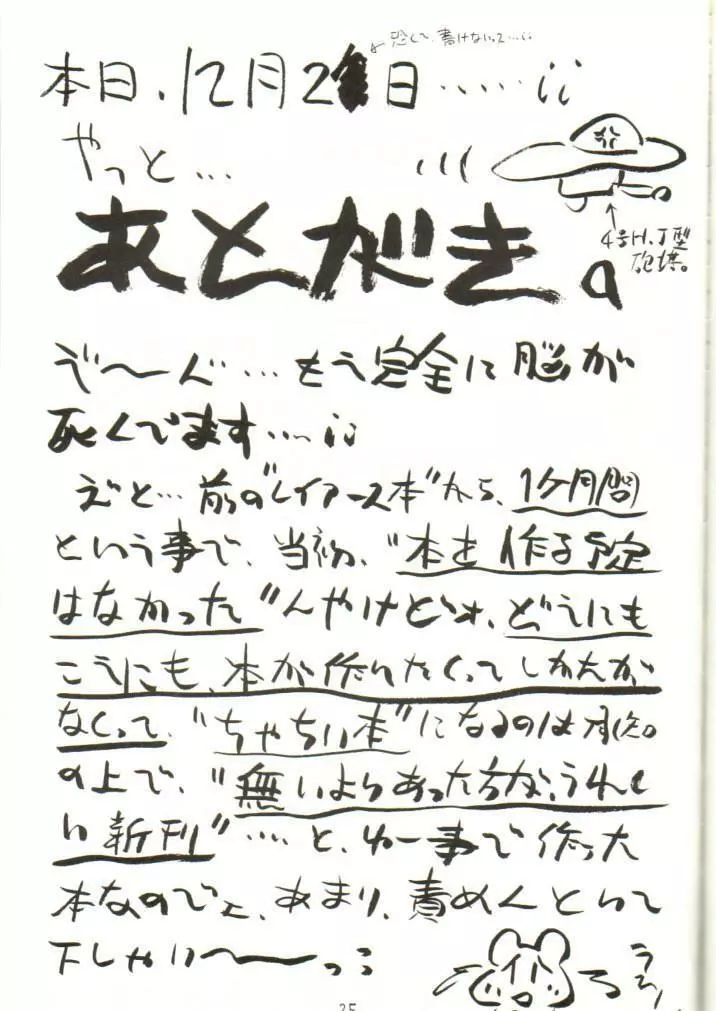 恐くて、書けないって…;;
本日、12月2 日……;;
やっと…
あとがき。
4号H.J型
砲塔。
ぞ〜ん…もう完全に脳が
死んでます…;;
えと…前の"レイアース本"から、1ヶ月間
という事で、当初、"本を作る予定
はなかった"んやけどォ、どうにも
こうにも、本が作りたくってしかたが
なくって、"ちゃちい本"になるのは承知。
の上で、"無いよりあった方が、うれし
い新刊"…と、ゆー事で作った
本なのでェ、あまり、責めんといて
下しゃい〜っ
25